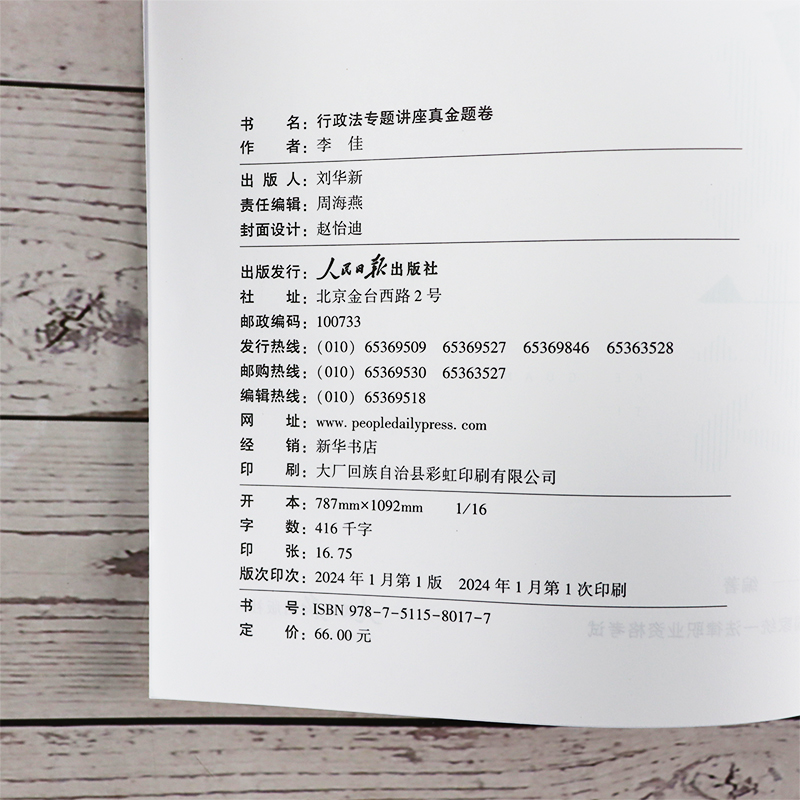 书　　名：行政法专题讲座真金题卷
作　　者：李　佳
出 版 人：刘华新
责任编辑：周海燕
封面设计：赵怡迪
出版发行：人民日报出版社
社　　址：北京金台西路 2 号
邮政编码：100733
发行热线：（010）65369509　65369527　65369846　65363528
邮购热线：（010）65369530　65363527
编辑热线：（010）65369518
网　　址：www. peopledailypress. com
经　　销：新华书店
印　　刷：大厂回族自治县彩虹印刷有限公司
开　　本：787mm×1092mm　　1/16
字　　数：416 千字
印　　张：16.75
版次印次：2024 年 1 月第 1 版　2024 年 1 月第 1 次印刷
书　　号：ISBN 978-7-5115-8017-7
定　　价：66.00 元